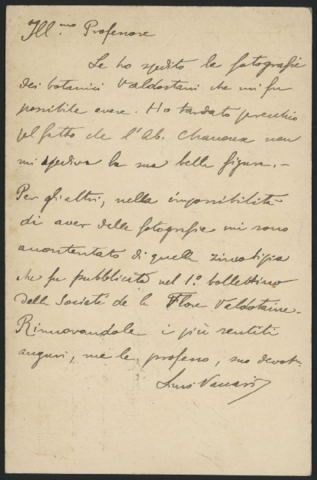 Ill.mo Professore
Le ho spedito le fotografie
dei botanici Valdostani che mi fu
possibile avere. Ho tardato parecchio
pel fatto che l'Ab. Chanoux non
mi spediva la sua bella figura. -
Per gli altri, nella impossibilità
di aver delle fotografie mi sono
accontentato di quella zincotipia
che fu pubblicata nel 1º bollettino
della Société de la Flore Valdôtaine.
Rinnovandole i più sentiti
auguri, me le professo, suo devot.
Luigi Vaccari